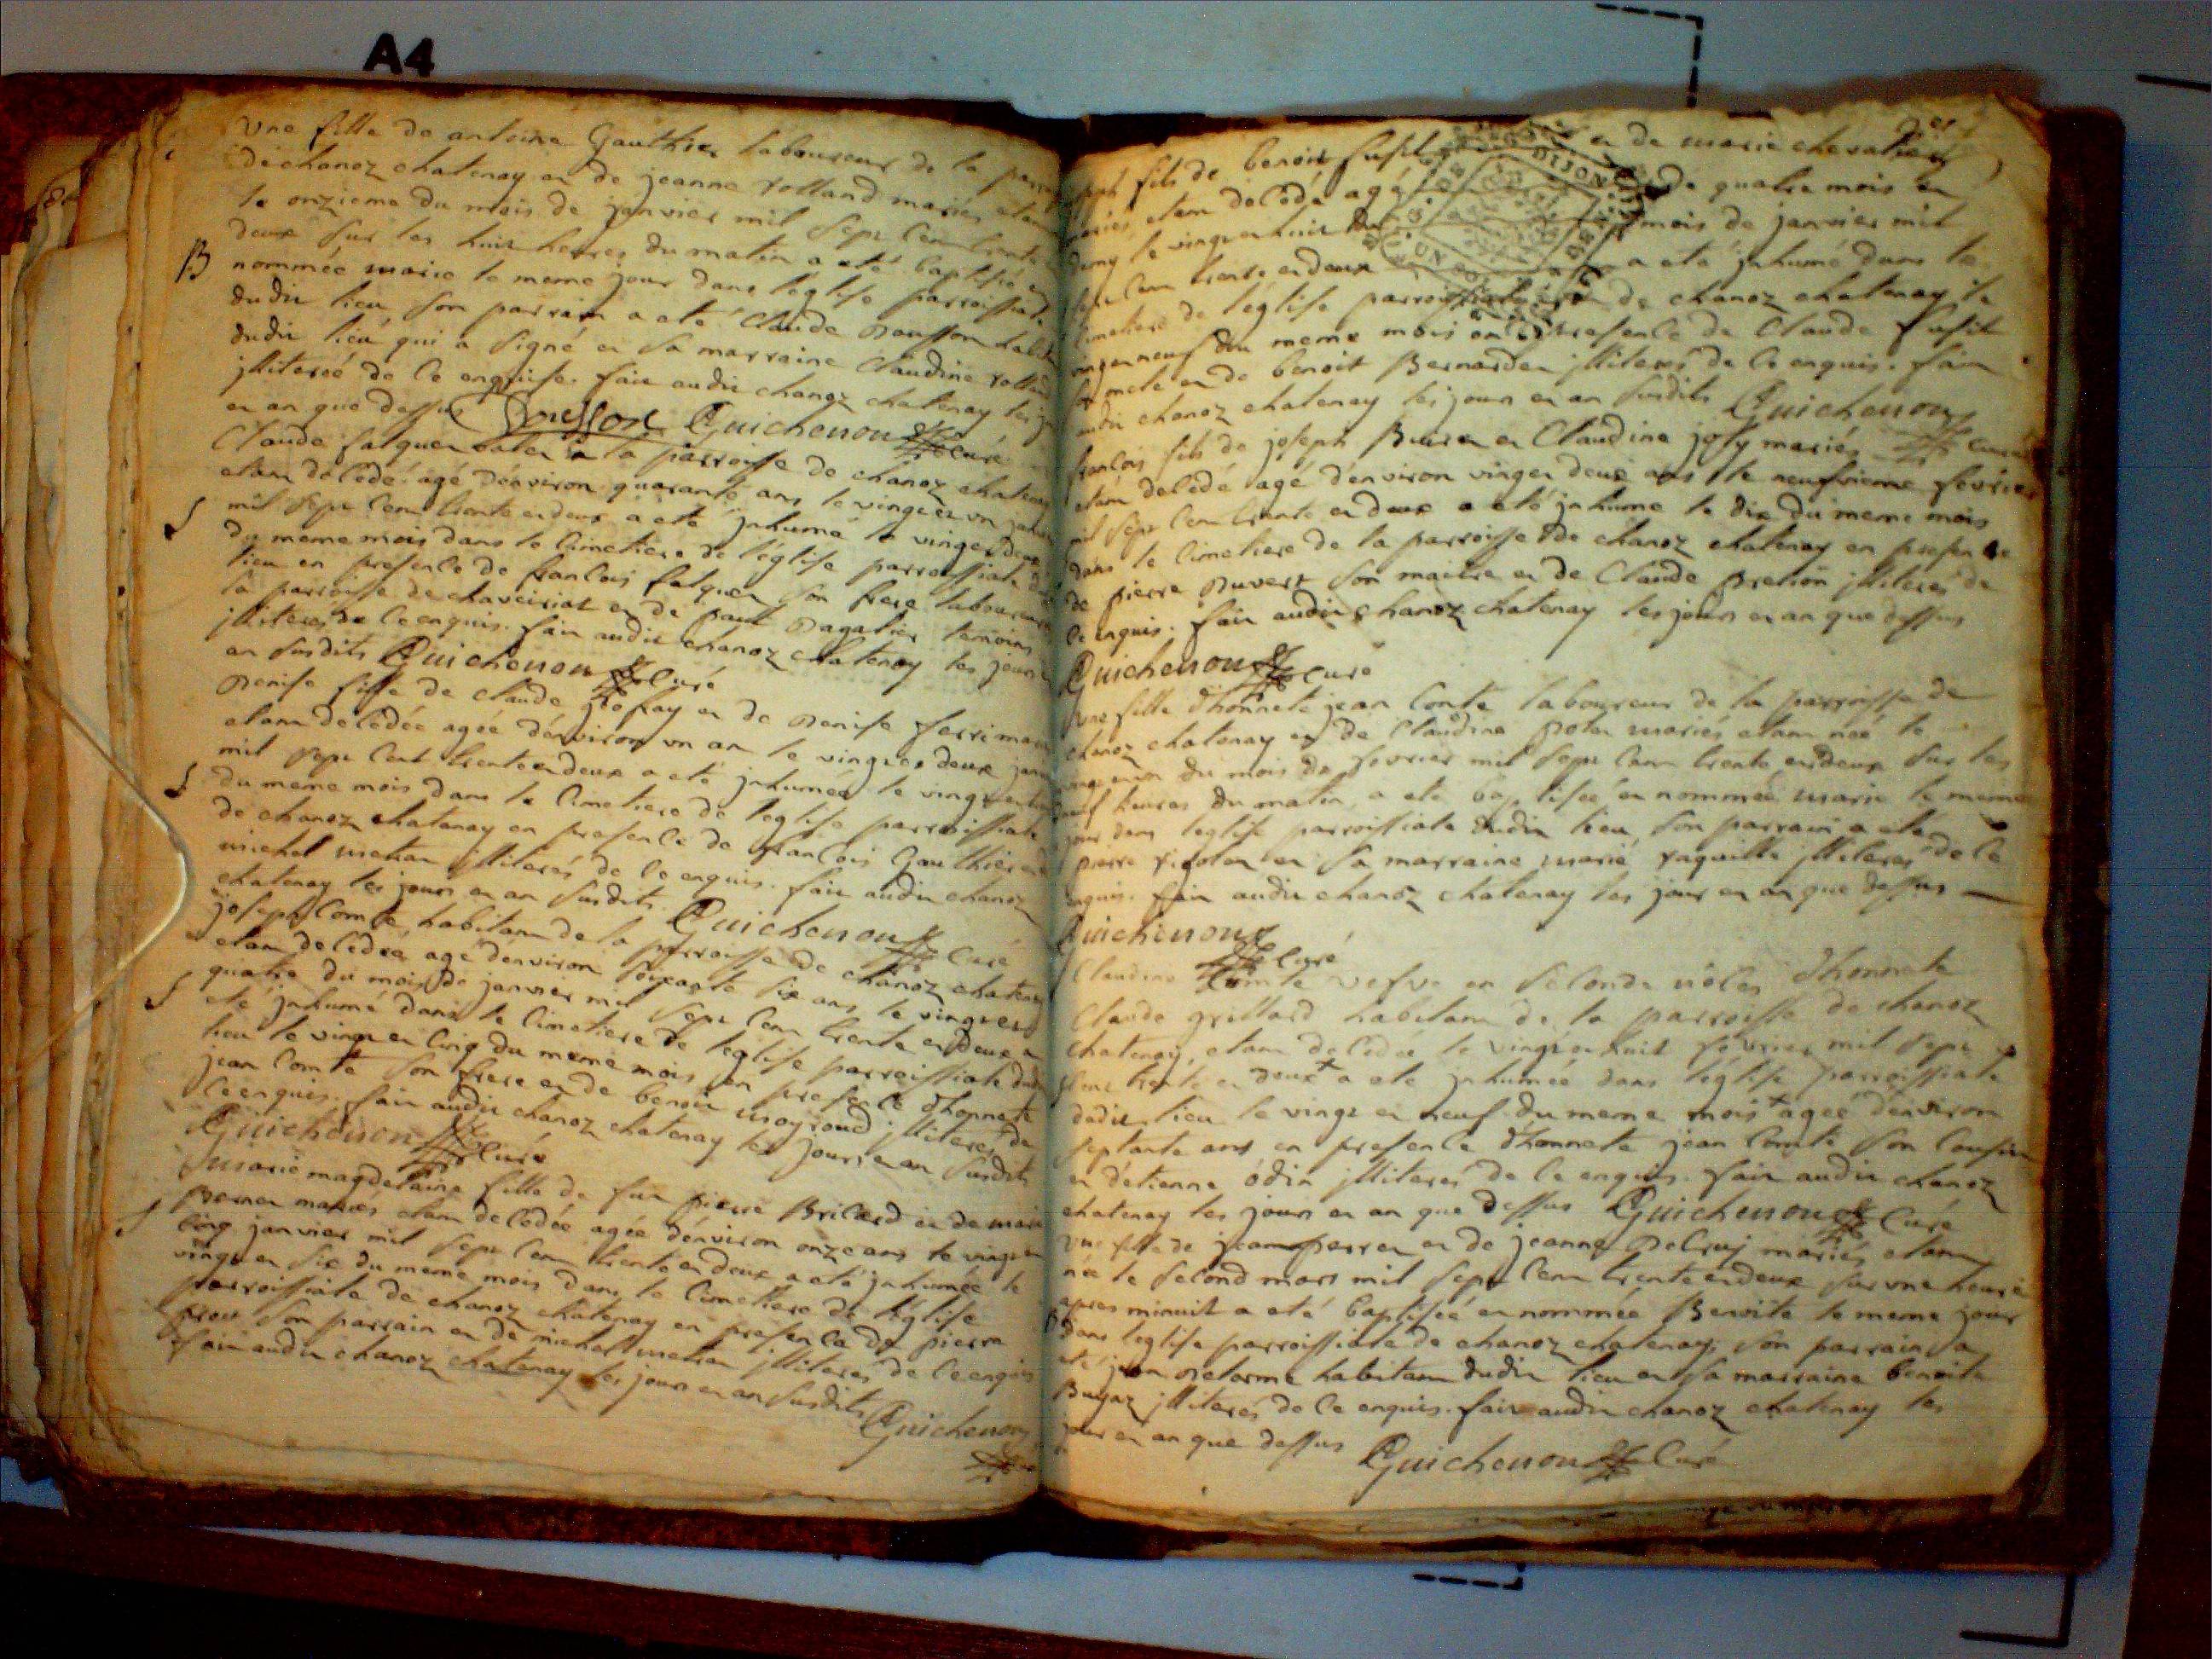 A4
une fille de antoine Gauthier laboureur de la
de chanoz chatenay et de jeanne rolland mariés etant
le onzieme du mois de janvier mil sept cent trente
deux sur les huit heures du matin a eté baptisée et
B
nommée marie le meme jour dans l'eglise parroissiale
dudit lieu son parrain a eté Claude Dousson
dudit lieu qui a signé et sa marraine Claudine rolland
illiterée de ce enquise. fait audit chanoz chatenay les
et an que dessus Dousson Guichenon Curé
Claude falquet de la parroisse de chanoz chatenay
etant decedé agé denviron quarante ans le vingt et un
S
mil sept cent trente et deux a eté inhumé le vingt et deux
du meme mois dans le cimetiere de l'eglise parroissiale
lieu en presence de francois falquet son frere laboureur
la parroisse de chaveiriat et de paul Pagatier temoins
illiterés de ce enquis. fait audit chanoz chatenay les jour
et an susdits Guichenon Curé
Denise fille de Claude et de Denise
etant decedée agée denviron un an le vingt et deux
mil sept cent trente et deux a eté inhumée le vingt
S
du meme mois dans le cimetiere de l'eglise parroissiale
de chanoz chatenay en presence de francois Gauthier et
michel illiterés de ce enquis. fait audit chanoz
chatenay les jour et an susdits. Guichenon Curé
joseph Comte habitant de la parroisse de chanoz chatenay
etant decedé agé denviron soixante six ans le vingt et
quatre du mois de janvier mil sept cent trente et deux a
S
eté inhumé dans le cimetiere de l'eglise parroissiale dudit
lieu le vingt et cinq du meme mois en presence d'honnete
jean Comte son frere et de benoit moyroud illiterés de
ce enquis. fait audit chanoz chatenay les jour et an susdits
Guichenon Curé
marie magdelaine fille de feu pierre Brilard et de marie
perret mariés etant decedée agée denviron onze ans le vingt et
S
cinq janvier mil sept cent trente et deux a eté inhumée le
vingt et six du meme mois dans le cimetiere de l'eglise
parroissiale de chanoz chatenay en presence de pierre
son parrain et de michel illiterés de ce enquis
fait audit chanoz chatenay les jour et an susdits Guichenon
fils de benoit fusil et de marie chevalier
mariés etant decedé agé de quatre mois et
demy le vingt et huit du mois de janvier mil
sept cent trente et deux a eté inhumé dans le
cimetiere de l'eglise parroissiale de chanoz chatenay le
vingt et neuf du meme mois en presence de Claude fusil
et de benoit Bernardet illiterés de ce enquis. fait
audit chanoz chatenay les jour et an susdits Guichenon
curé
francois fils de joseph et Claudine joly mariés
etant decedé agé denviron vingt et deux ans le neufvieme fevrier
mil sept cent trente et deux a eté inhumé le dix du meme mois
dans le cimetiere de la parroisse de chanoz chatenay en presence
de pierre Duvert son maitre et de Claude illiterés de
ce enquis. fait audit chanoz chatenay les jour et an que dessus
Guichenon curé
une fille d'honnete jean Conte laboureur de la parroisse de
chanoz chatenay et de Claudine mariés etant née le
vingt et un du mois de fevrier mil sept cent trente et deux sur les
neuf heures du matin a eté baptisée et nommée marie le meme
jour dans l'eglise parroissiale dudit lieu son parrain a eté
pierre et sa marraine marie illiterés de ce
enquis. fait audit chanoz chatenay les jour et an que dessus
Guichenon Curé
Claudine Comte vefve en seconde noces d'honnete
Claude grillard habitant de la parroisse de chanoz
chatenay, etant decedée le vingt et huit fevrier mil sept
cent trente et deux a eté inhumée dans l'eglise parroissiale
dudit lieu le vingt et neuf du meme mois agée denviron
septante ans en presence d'honnete jean Comte son cousin
et d'etienne odin illiterés de ce enquis. fait audit chanoz
chatenay les jour et an que dessus Guichenon Curé
une fille de jean perret et de jeanne mariés etant
née le second mars mil sept cent trente et deux sur une heure
apres minuit a eté baptisée et nommée Benoite le meme jour
B
dans l'eglise parroissiale de chanoz chatenay, son parrain a
eté jean Delorme habitant dudit lieu et sa marraine benoite
Buyaz illiterés de ce enquis. fait audit chanoz chatenay les
jour et an que dessus Guichenon Curé